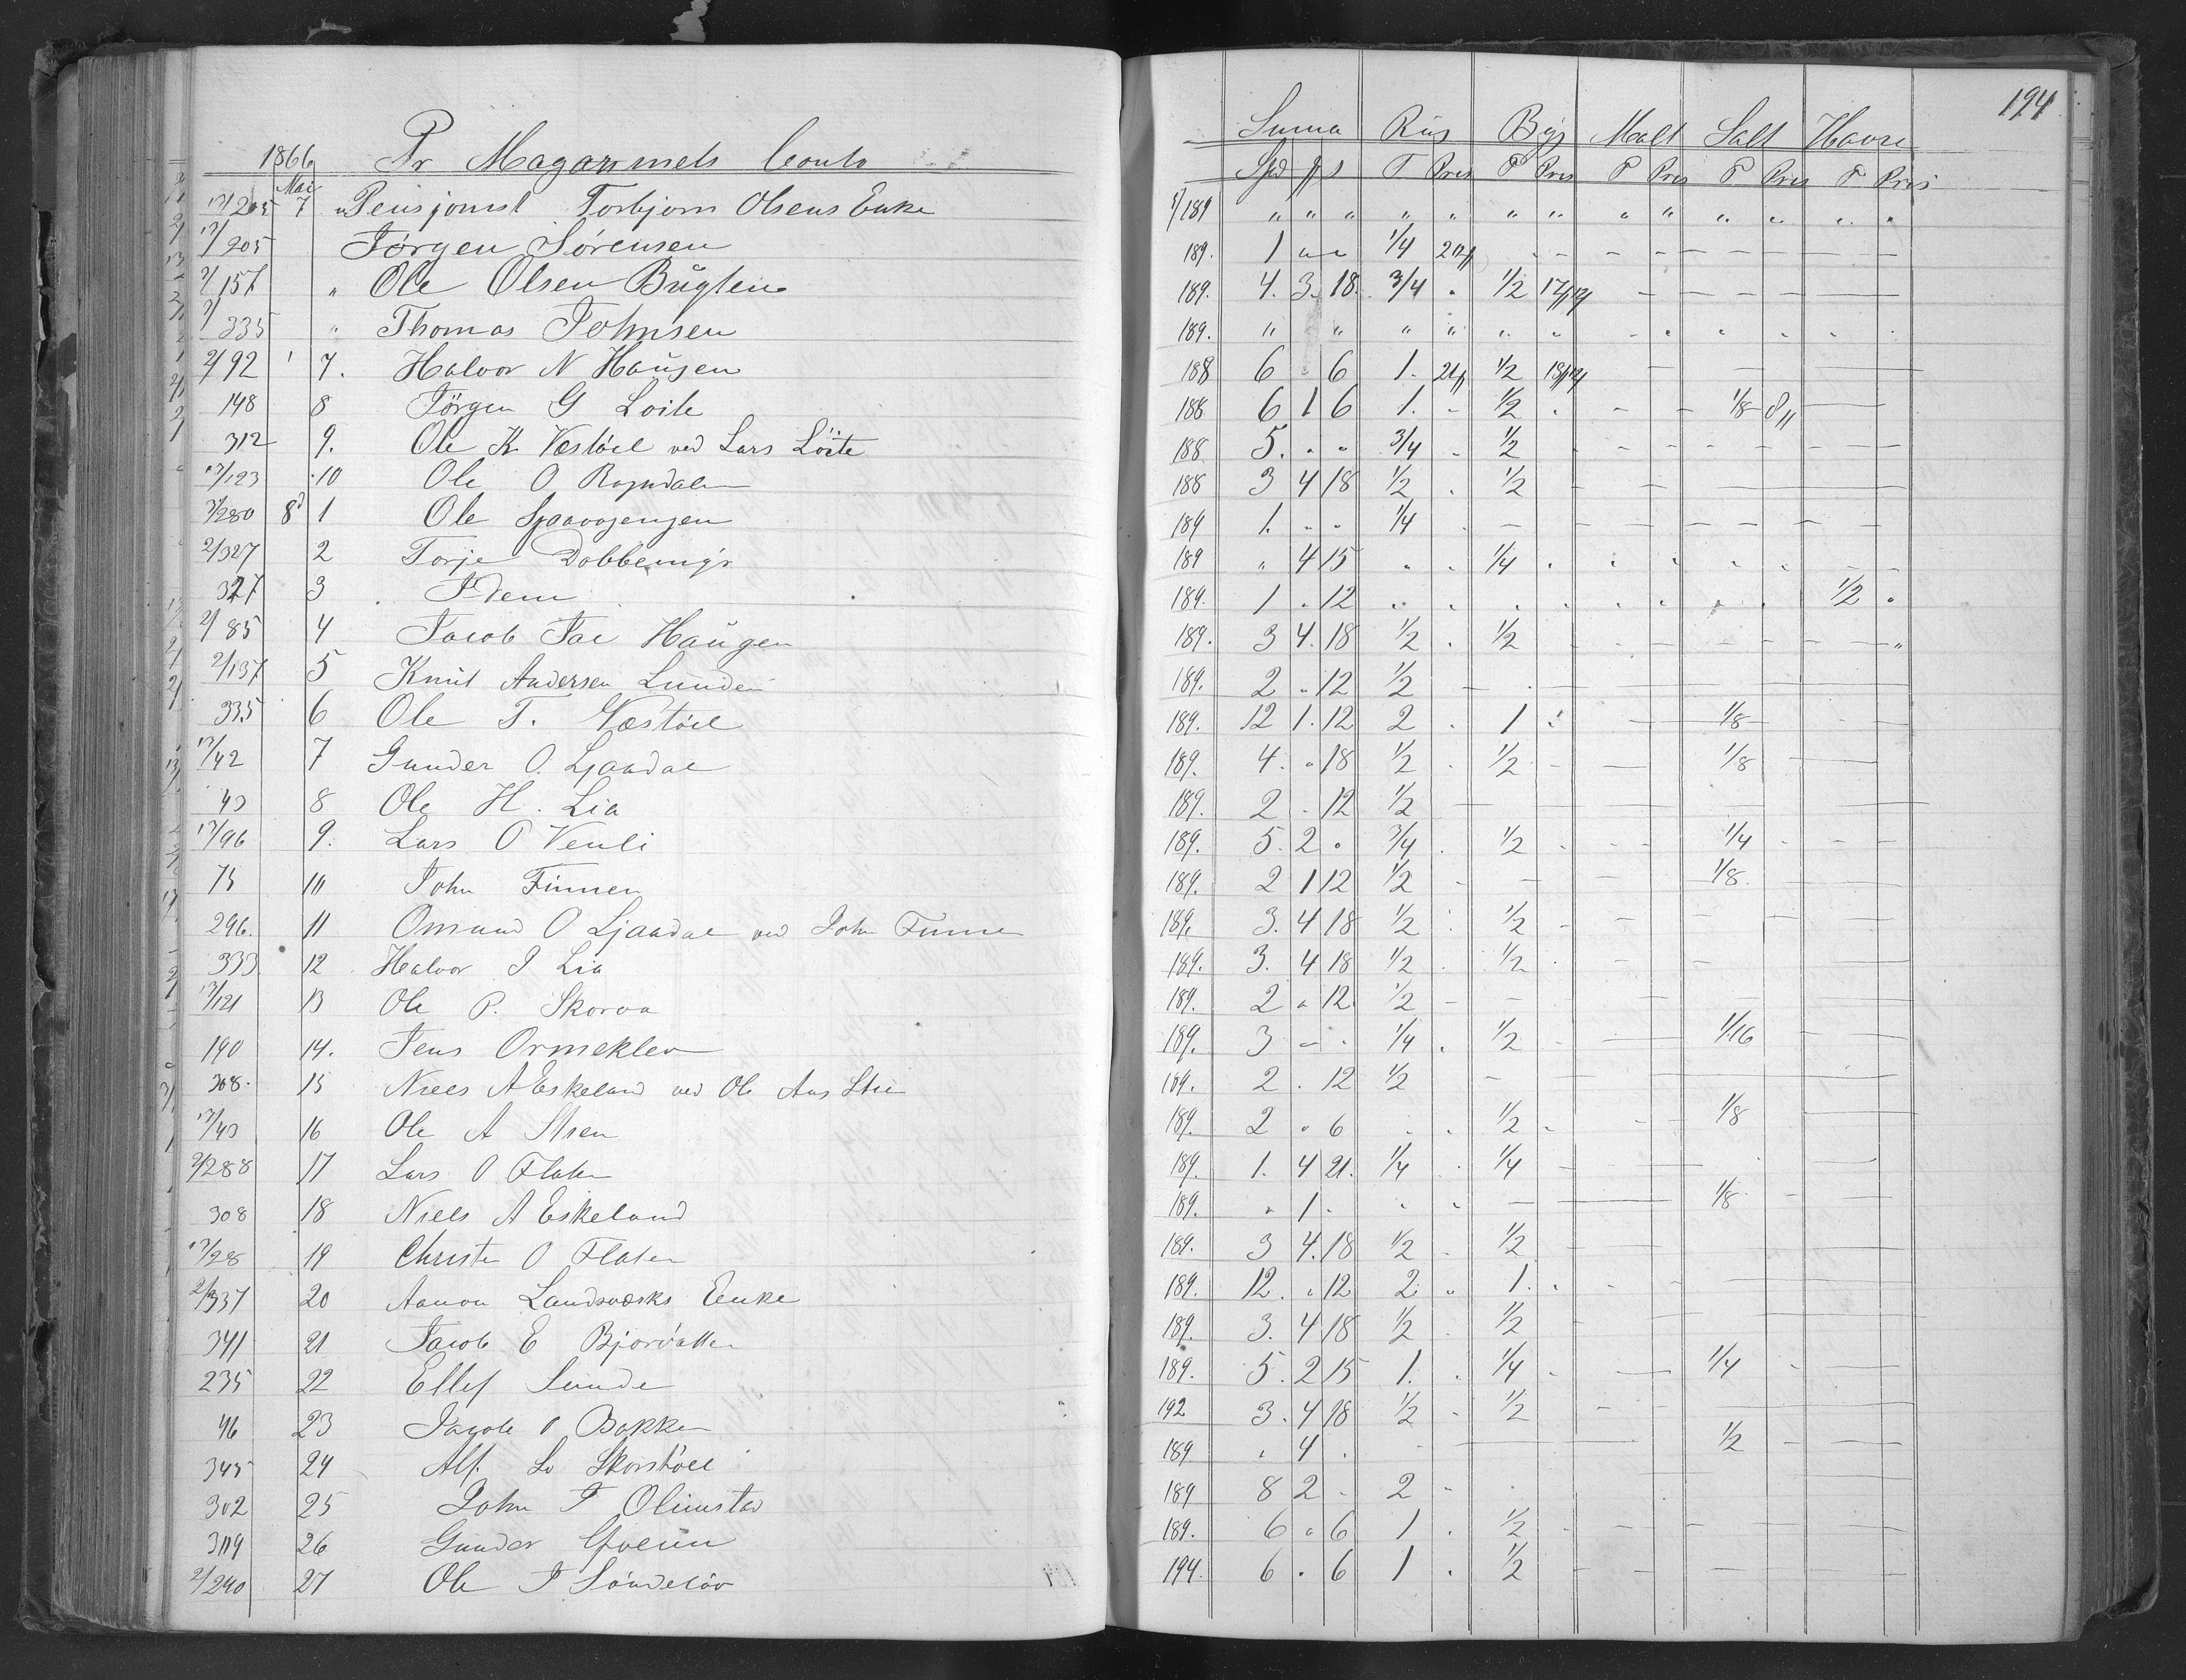 194
1866 Pr Magazinets Conto Summa Rug Byg Malt Salt Havre
Mai Spd # s T Pris T Pris T Pris T Pris T Pris
17/205 7 " Pensjonist Torbjorn Olsens Enke 189 " " " " " " " " " " " " "
17/205 Jørgen Sørensen 189. 1 " " 1/4
2/157 " Ole Olsen Buglen 189. 4. 3. 18. 3/4 " 1/2
2/335 " Thomas Johnsen 189. " " " " " " " " " " " "
2/92 7. Halvor N Haugen 188 6 " 6 1. 1/2
148 8 Jörgen G Loite 188 6 1 6 1. - 1/2 1/8
312 9. Ole K Vestöel ved Lars Löite 188 5. " " 3/4 1/2
17/123 10 Ole O Rogndalen 188 3 4 18 1/2 1/2
2/280 8d 1 Ole 189 1. " " 1/4
2/327 2 Torje 189 " 4 15 " " 1/4
327 3 Idem 189. 1 " 12 1/2
2/85 4 Jacob Jac Haugen 189. 3 4. 18 1/2 1/2
2/137 5 Knut Andersen Lunden 189. 2 " 12 1/2
335 6 Ole T. Næstöel 189. 12 1. 12 2 1 1/8
17/42 7 Gunder O. Ljaadal 189. 4. " 18 1/2 1/2 1/8
43 8 Ole H. Lia 189. 2 - 12 1/2
17/96 9. Lars O Venli 189. 5. 2 " 3/4 1/2 1/4
75 10 John Finnen 189. 2 1 12 1/2 1/8.
296. 11 Omund O Ljaadal ved John Finne 189. 3. 4 18 1/2 1/2
333 12 Halvor J Lia 189. 3. 4 18 1/2 1/2
17/121 13 Ole P. Skorva 189. 2 " 12 1/2
190 14. Jens Ormeklev 189. 3 - - 1/4 1/2 1/16
308. 15 Niels A Eskeland ved Ole Aas 189. 2 . 12 1/2
17/43 16 Ole A 189. 2 " 6 1/2 1/8
2/288 17 Lars O Flaten 189. 1. 4 21. 1/4 1/4
308 18 Niels A Eskeland 189. " 1 - 1/8
17/28 19 Christen O Flaten 189. 3 4. 18 1/2 1/2
2/337 20 Aanon Landsværks Enke 189. 12. " 12 2 " 1.
341 21 Jacob E Bjorvatten 189. 3. 4 18 1/2 1/2
235 22 Ellef Sunde 189. 5. 2 15 1. 1/4 1/4
46 23 Jacob O Bakken 192 3. 4 18 1/2 1/2
345 24 Alf Skorstöel 189. " 4 . 1/2
302 25 John T Olimstad 189 8 2 - 2
26 Gunder 189. 6 " 6 1 1/2
2/240 27 Ole J Söndelöv 194. 6 " 6 1 1/2